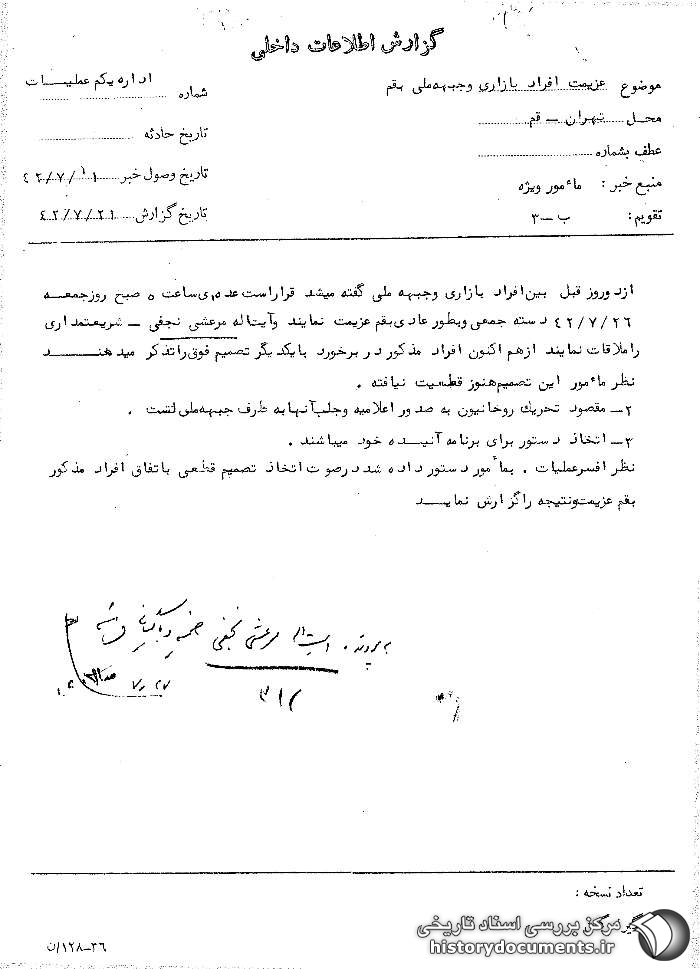 گزارش اطلاعات داخلی
اداره یکم عملیــــات
موضوع عزیمت افراد بازاری و جبهه‌ملی بقم
شماره
محل تهران ــ قم
تاریخ حادثه
عطف بشماره
تاریخ وصول خبر ۴۲/۷/۲۱
منبع خبر : مأمور ویژه
تاریخ گزارش ۴۲/۷/۲۱
تقویم : ب ــ ۳
ازدوروز قبل بین‌افراد بازاری وجبهه ملی گفته میشد قراراست عده‌ی‌ساعت ۵ صبح روزجمعــه
۴۲/۷/۲۶ دسته جمعی وبطور عادی‌بقم عزیمت نمایند وآیت‌اله مرعشی نجفی ــ شریعتمداری
راملاقات نمایند ازهم اکنون افراد مذکور در برخورد بایکدیگر تصمیم فوق‌راتذکر میدهنــــد
نظر مأمور این تصمیم‌هنوز قطعیت نیافته .
۲ــ مقصود تحریك روحانیون به صدور اعلامیه وجلب‌آنهابه طرف جبهه‌ملی‌است .
۳ــ اتخاذ دستور برای برنامه آتیــده خود میباشند .
نظر افسرعملیات . بمأمور دستور داده شد درصوت اتخاذ تصمیم قطعی باتفاق افراد مذکور
بقم عزیمت‌ونتیجه راگزارش نمایـــد
بپرونده آیت‌اله مرعشی نجفی ضمیمه و بایگانی شود
۷/۲۷
تعداد نسخه :
گیرندگان
۳۶-۱۲۸/ن
مرکز بررسی اسناد تاریخی
historydocuments.ir